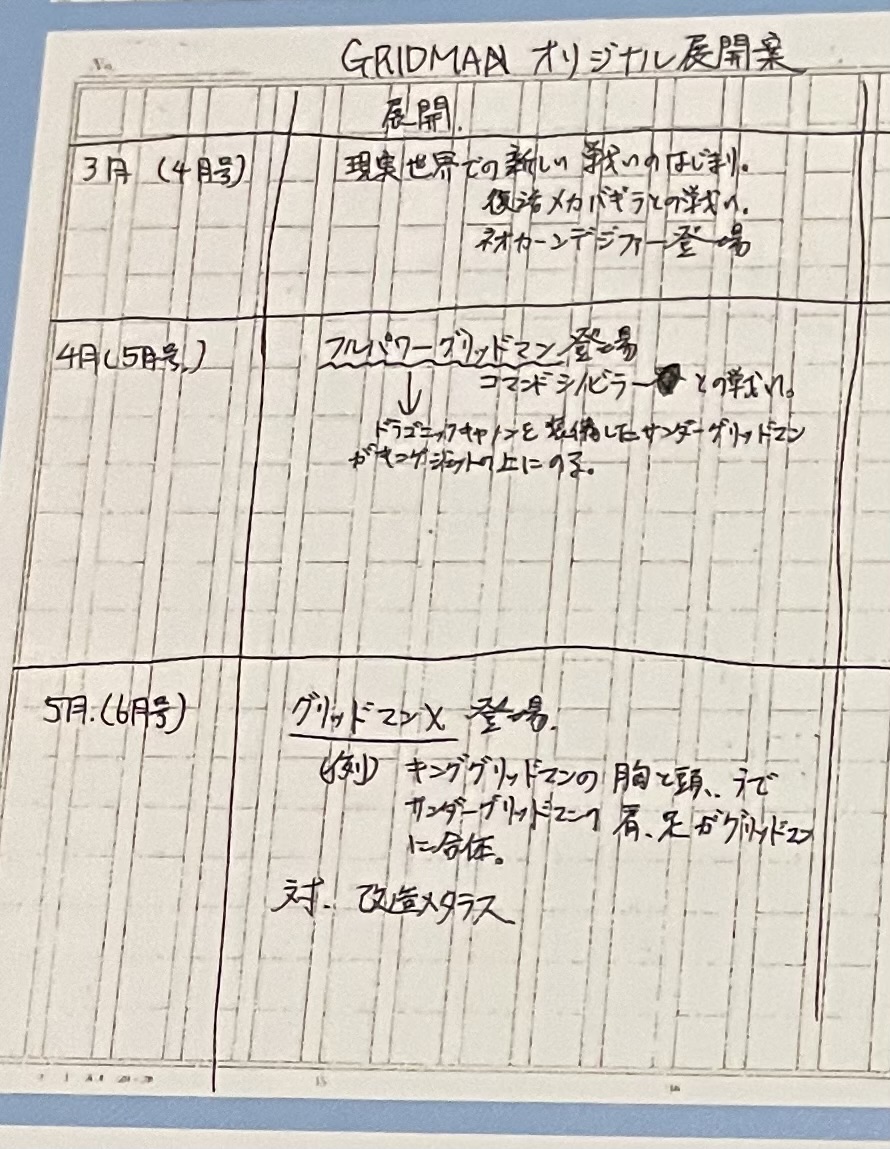 No.
GRIDMAN オリジナル展開案
展開.
3月 (4月号)
現実世界での新しい戦いのはじまり。
復活メカバギラとの戦い。
ネオカーンデジファー登場
4月(5月号)
フルパワーグリッドマン登場
コマンドシノビラー との戦い。
↓
ドラゴニックキャノンを装備したサンダーグリッドマン
がキングジェットの上にのる。
5月.(6月号)
グリッドマンX 登場.
(例) キンググリッドマンの胸と頭、うで
サンダーグリッドマンの肩、足がグリッドマン
に合体。
対. 改造メタラス
15
16